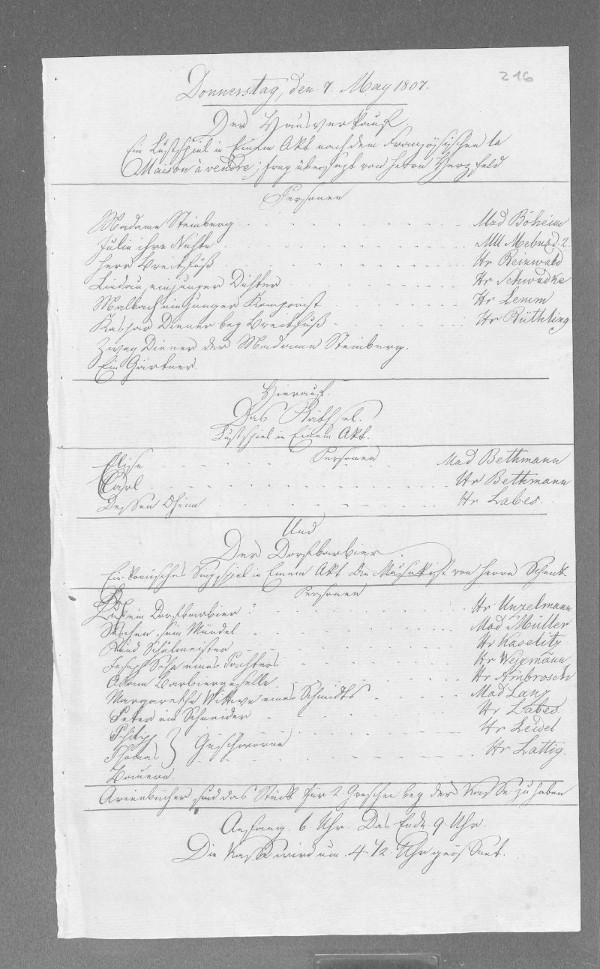 216
Donnerstag, den 7 May 1807.
Der Hausverkauf
Ein Lustspiel in Einem Akt nach dem Französischen la
Maison à vendre; frey übersetzt von Herrn Herzfeld
Personen
Madame Steinberg Mad Böheim
Julie ihre Nichte Mll Mebus 2
Herr Breitfuß Hr Reinwald
Lindau, ein junger Dichter Hr Schwadke
Malbach ein junger Komponist Hr Lemm
Kaspar Diener bey Breitfuß Hr Rüthling
Zwey Diener der Madame Steinberg.
Ein Gärtner.
Hierauf
Das Räthsel.
Lustspiel in Einem Akt.
Personen
Elise Mad Bethmann
Carl Hr Bethmann
Dessen Oheim Hr Labes
Und
Der Dorfbarbier.
Ein komisches Singspiel in Einem Akt. Die Musik ist von Herrn Schenk.
Personen
Lux ein Dorfbarbier Hr Unzelmann
Suschen sein Mündel Mad Müller
Rund Schulmeister Hr Kaselitz
Joseph Sohn eines Pachters Hr Weizmann
Adam Barbiergeselle Hr Ambrosch
Margarethe Wittwe eines Schmidts Mad Lanz
Peter ein Schneider Hr Labes
Philip Hr Leidel
Thomas } Geschworne Hr Lattig
Bauern.
Arienbücher sind das Stück für 2 Groschen bey der Kasse zu haben
Anfang 6 Uhr. Das Ende 9 Uhr.
Die Kasse wird um 4 1/2 Uhr geöffnet.